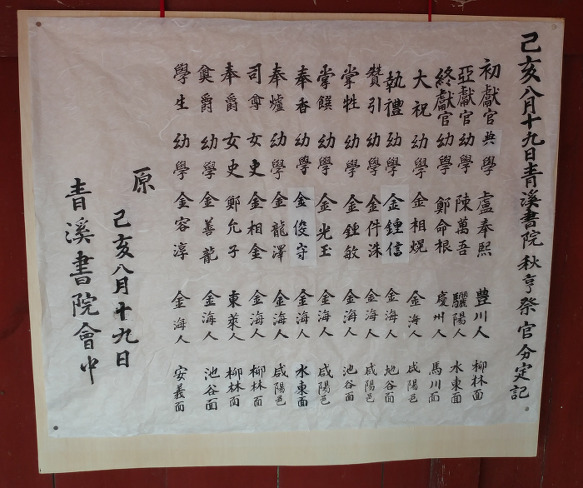 己亥八月十九日青溪書院秋享祭官分定記
初獻官 典學 盧奉熙 豊川人 柳林面
亞獻官 幼學 陳萬吾 驪陽人 水東面
終獻官 幼學 鄭命根 慶州人 馬川面
大祝 幼學 金相焜 金海人 咸陽邑
執禮 幼學 金鍾信 金海人 池谷面
贊引 幼學 金件洙 金海人 咸陽邑
掌牲 幼學 金鍾敏 金海人 池谷面
掌饌 幼學 金光玉 金海人 咸陽邑
奉香 幼學 金俊守 金海人 水東面
奉爐 幼學 金龍澤 金海人 咸陽邑
司尊 女史 金相金 金海人 柳林面
奉爵 女史 鄭允子 東萊人 柳林面
奠爵 幼學 金善龍 金海人 池谷面
學生 幼學 金容淳 金海人 安義面
原
己亥八月十九日
青溪書院會中